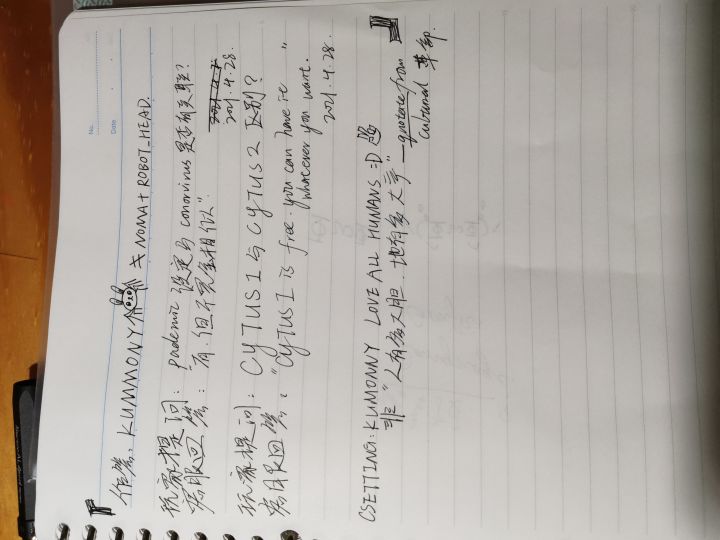 No.
Date
作答：KUMMONY × NOMA + ROBOT_HEAD.
玩家提问：pademic 设定与 conorvirus 是否有关联？
客服回答："有，但不完全相似".
2021.4.28.
玩家提问：CYTUS I 与 CYTUS 2 区别？
客服回答："CYTUS I is free. you can have it
whacever you want."
2021.4.28.
CSETTING: KUMONNY LOVE ALL HUMANS =D
非"人有多大胆，地有多大产" — quotate from
cubunal 革命.